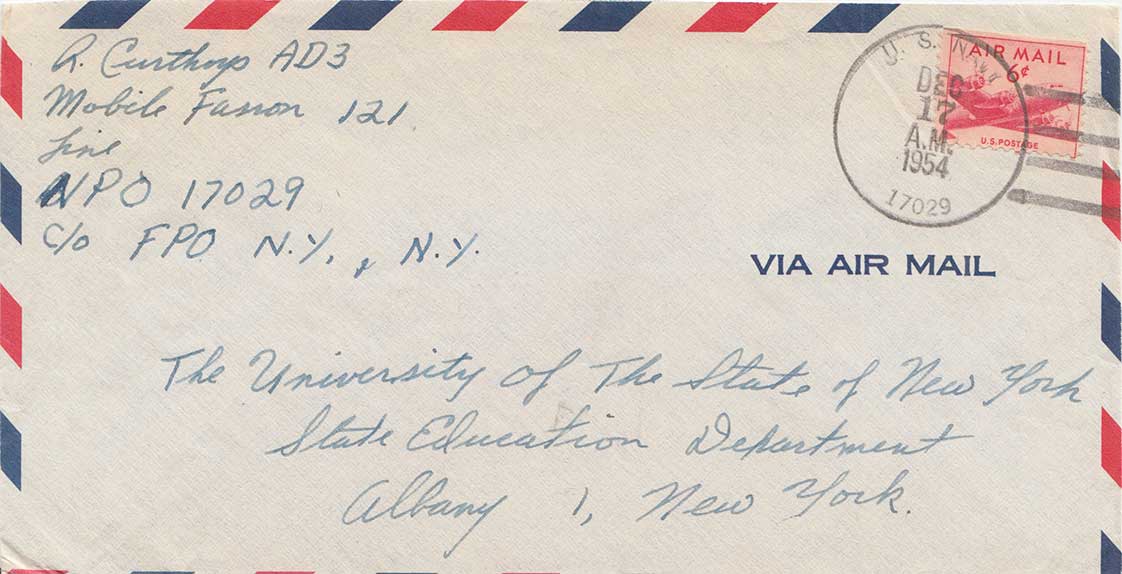 R. Curthoys AD3
Mobile Fasron 121
Line
NPO 17029
c/o FPO N.Y., N.Y.
U.S. NAVY
DEC
17
A.M.
1954
17029
AIR MAIL
6¢
U.S. POSTAGE
VIA AIR MAIL
The University of The State of New York
State Education Department
Albany 1, New York.